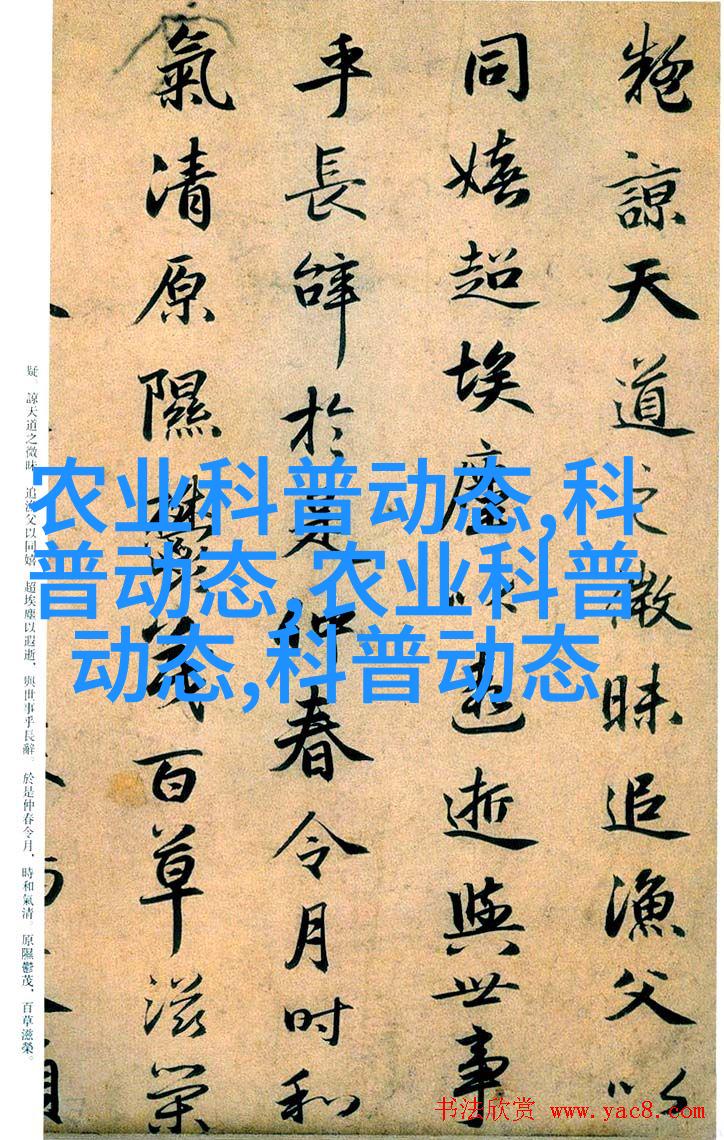 疑諒天道之微昧追漁父以
同嬉超埃塵以遐逝與世事
乎長辭於是仲春令月時和
氣清原隰鬱茂百草滋榮
疑。諒天道之微昧，追漁父以同嬉。超埃塵以遐逝，與世事乎長辭。於是仲春令月，時和氣清。原隰鬱茂，百草滋榮。
农业科普动态,科
普动态,农业科普
动态,科普动态
书法欣赏 www.yac8.com